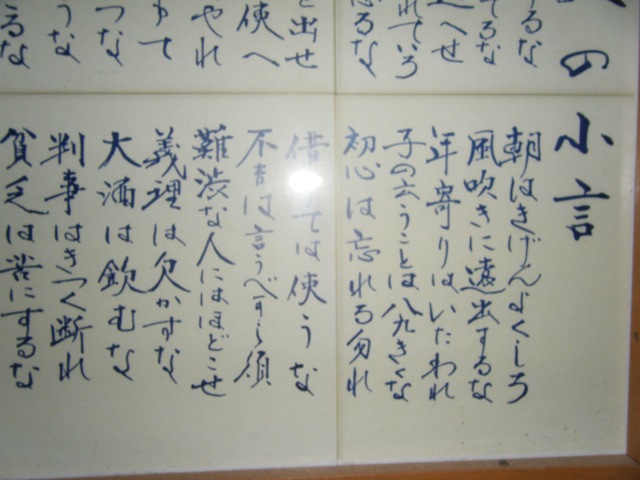 の小言
るな
てるな
へせ
れていろ
るな
出せ
使へ
やれ
て
つな
うな
るな
朝はきげんよくしろ
風吹きに遠出するな
年寄りはいたわれ
子の云うことは八九きくな
初心は忘れる勿れ
借ては使うな
不吉は言うべからず
難渋な人にはほどこせ
義理は欠かすな
大酒は飲むな
判事はきつく断れ
貧乏は苦にするな